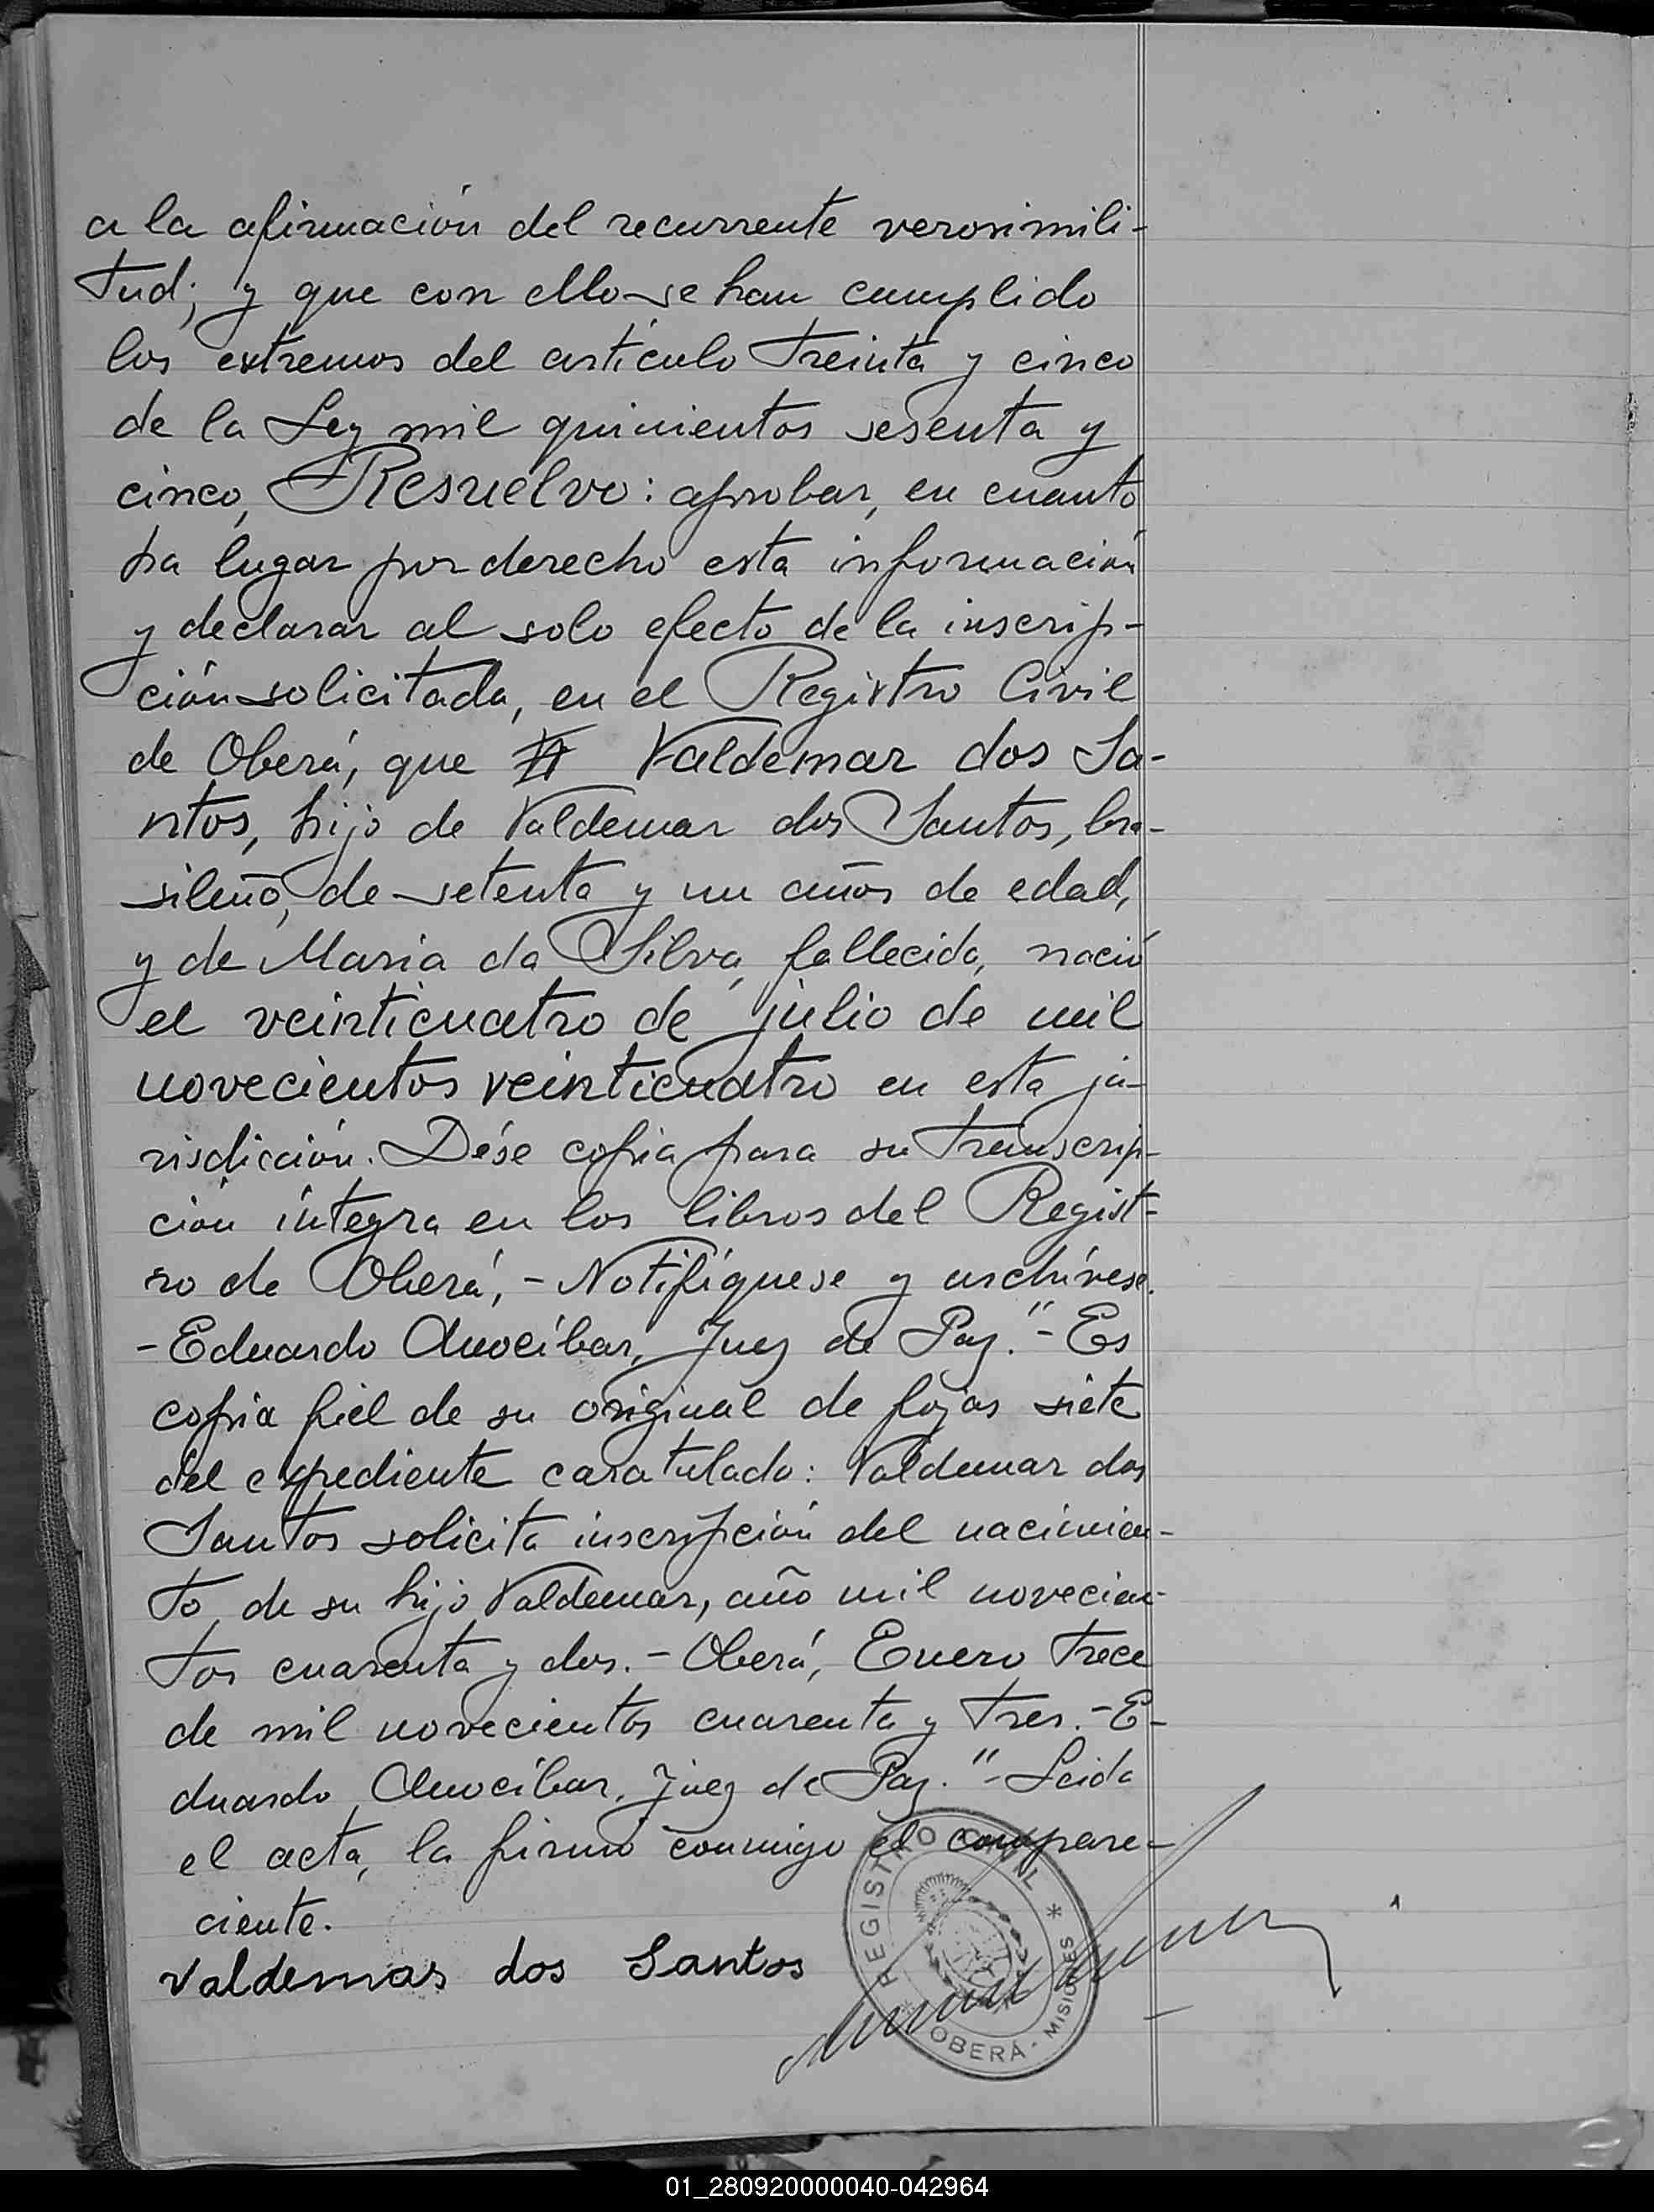 a la afirmación del recurrente verosimili-
tud; y que con ello se han cumplido
los extremos del artículo treinta y cinco
de la Ley mil quinientos sesenta y
cinco, Resuelvo: aprobar, en cuanto
ha lugar por derecho esta información
y declarar al solo efecto de la inscrip-
ción solicitada, en el Registro Civil
de Oberá, que Valdemar dos Sa-
ntos, hijo de Valdemar dos Santos, bra-
sileño, de setenta y un años de edad,
y de Maria da Silva, fallecida, nació
el veinticuatro de julio de mil
novecientos veinticuatro en esta ju-
risdicción. Dése copia para su transcrip-
ción íntegra en los libros del Regist-
ro de Oberá, - Notifíquese y archívese.
- Eduardo Amocíbar, Juez de Paz." - Es
copia fiel de su original de fojas siete
del expediente caratulado: Valdemar dos
Santos solicita inscripción del nacimien-
to de su hijo Valdemar, año mil novecien-
tos cuarenta y dos. - Oberá, Enero trece
de mil novecientos cuarenta y tres. - E-
duardo Amocíbar, Juez de Paz." - Leida
el acta, la firmó conmigo el compare-
ciente.
Valdemar dos Santos
REGISTRO CIVIL
* OBERÁ - MISIONES *
01_280920000040-042964